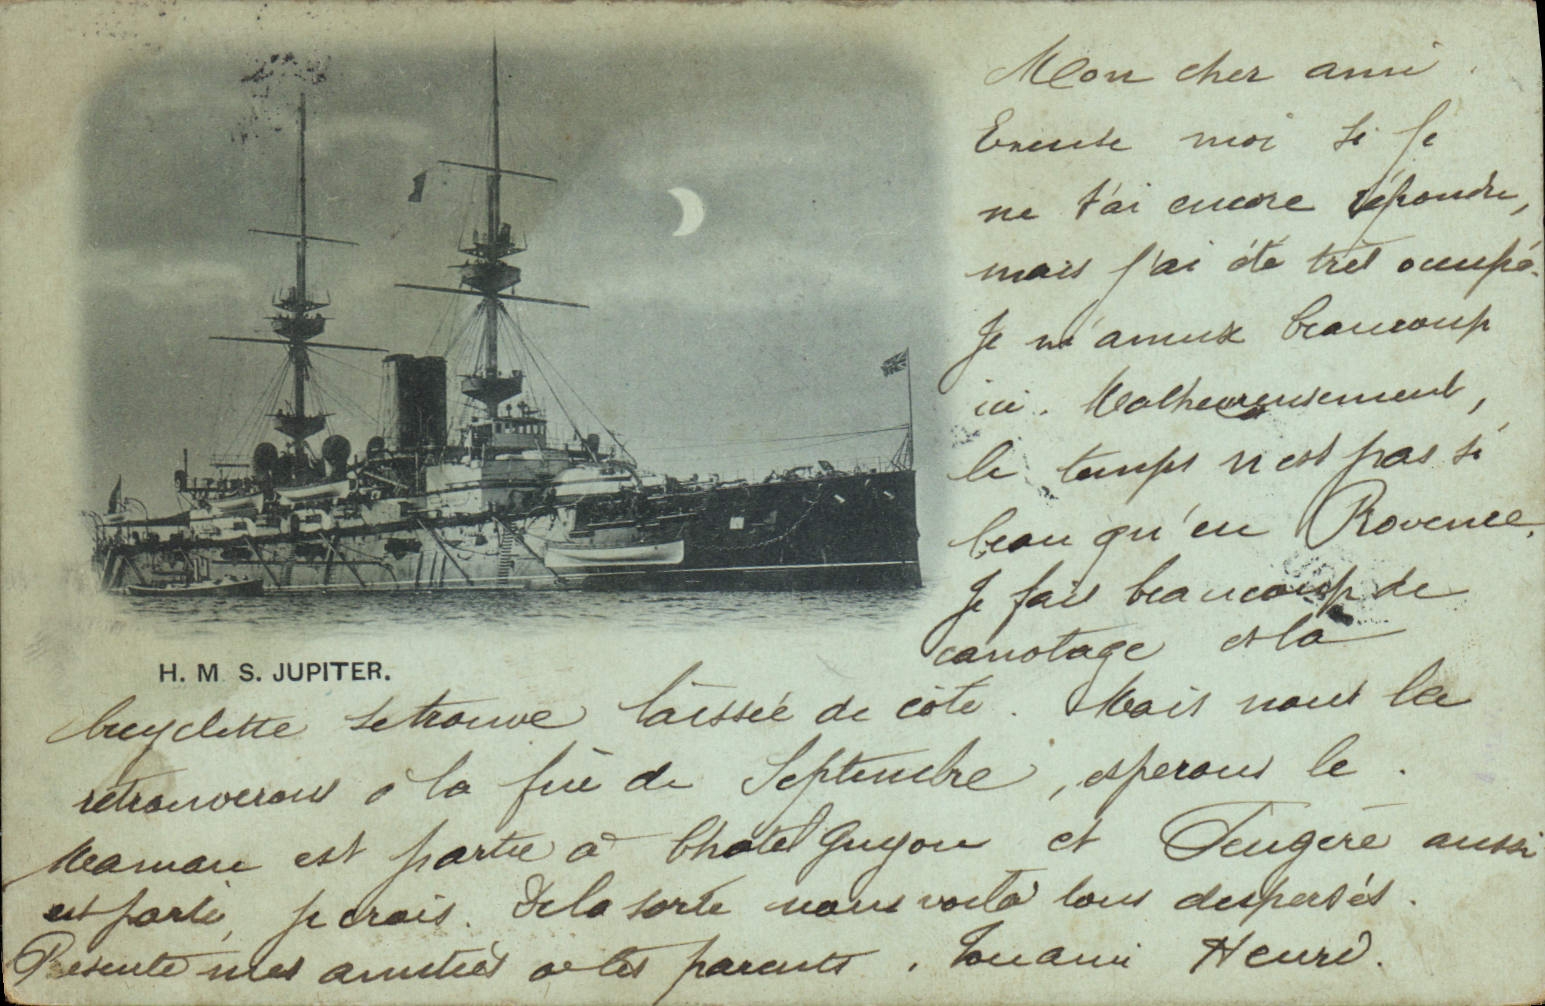 Mon cher ami.
Excuse moi si je
ne t'ai encore répondu,
mais j'ai été très occupé.
Je m'amuse beaucoup
ici. Malheureusement,
le temps n'est pas si
beau qu'en Provence.
Je fais beaucoup de
canotage et la
H. M S. JUPITER.
bicyclette se trouve laissée de côté. Mais nous la
retrouverons à la fin de Septembre, espérons le.
Maman est partie à Chatel Guyon et Feugère aussi
est parti, je crois. De la sorte nous voilà tous dispersés.
Présente mes amitiés à tes parents. Ton ami Henri.